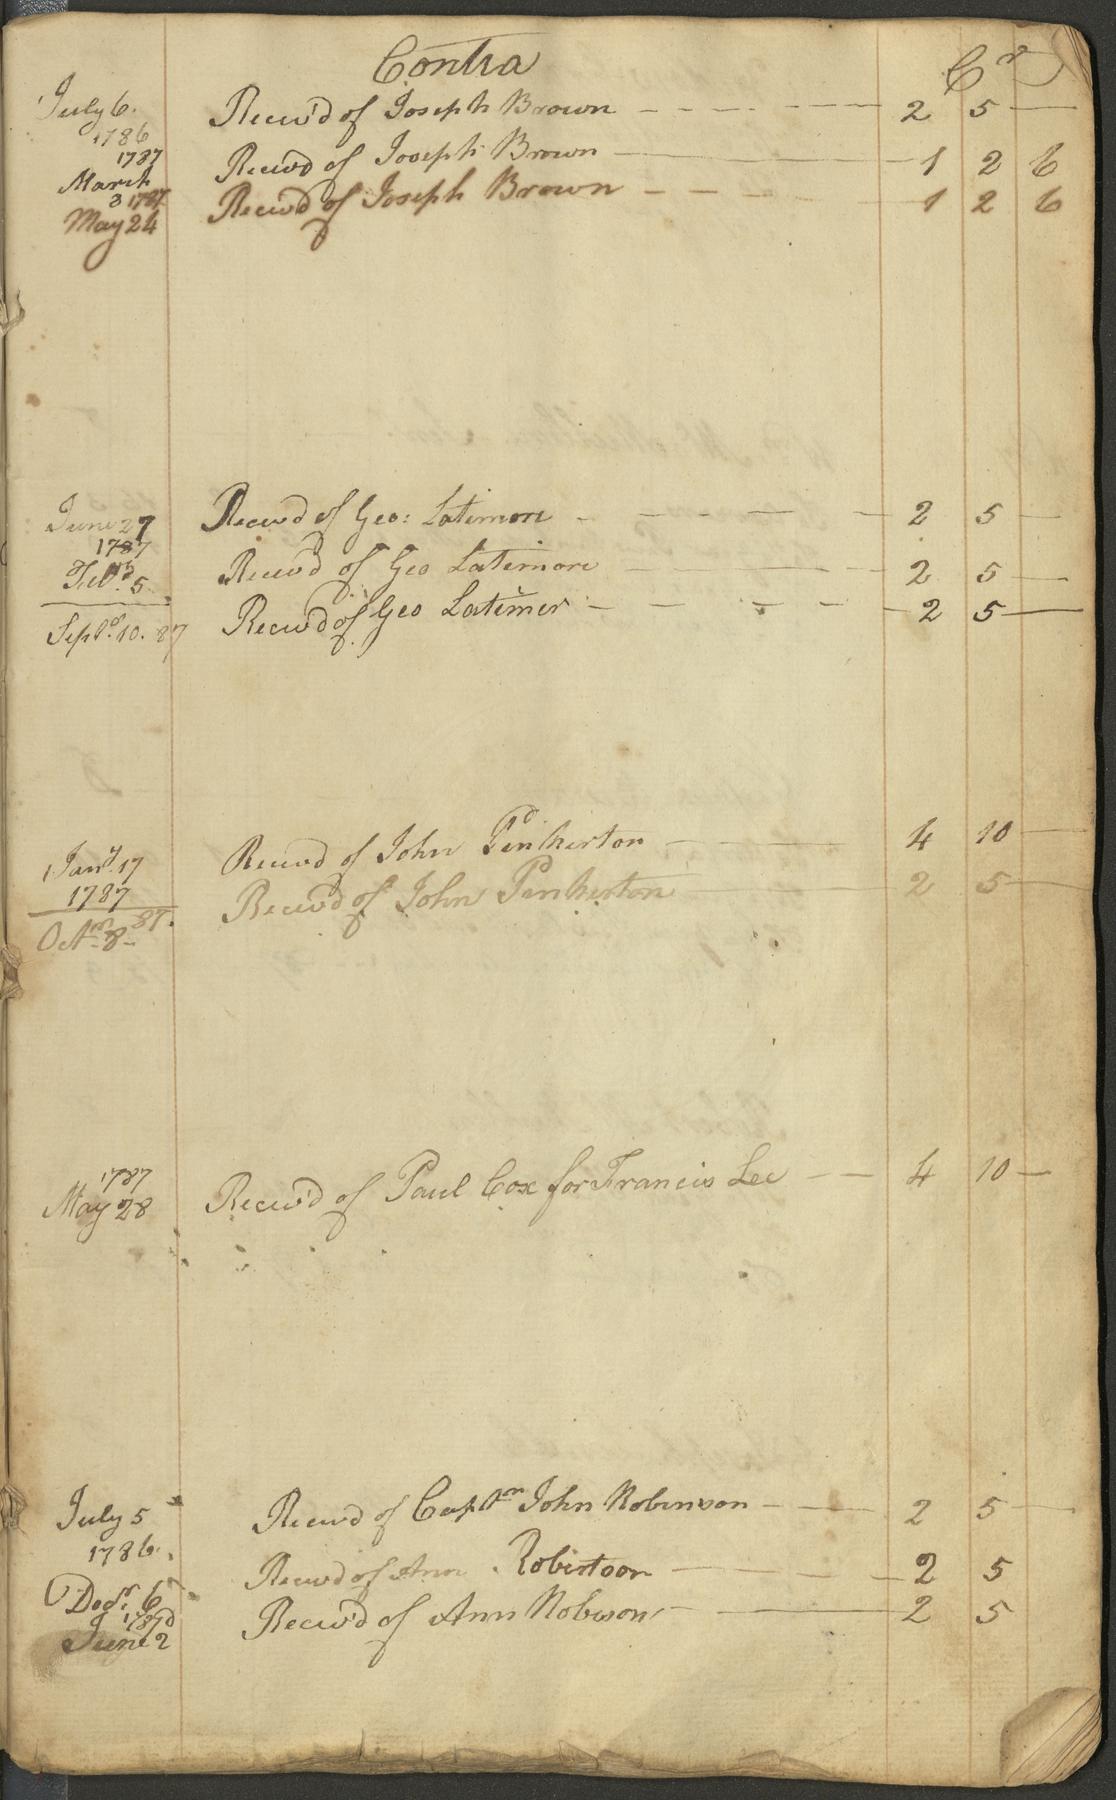 Contra Cr
July 6. Recevd of Joseph Brown 2 5
1786
1787
March Recevd of Joseph Brown 1 2 6
3 1787
May 24 Recevd of Joseph Brown 1 2 6
June 27 Recevd of Geo: Latimore 2 5
1787
Feb. 5 Recevd of Geo Latimore 2 5
Sept. 10. 87 Recevd of Geo Latimer 2 5
Jany. 17 Recevd of John Pinkerton 4 10
1787
Octm 8 87. Recevd of John Pinkerton 2 5
1787
May 28 Recevd of Paul Cox for Francis Lee 4 10
July 5 Recevd of Captn John Robinson 2 5
1786.
Decr. 6 Recevd of Ann Robertson 2 5
1787
June 2 Recevd of Ann Robison 2 5